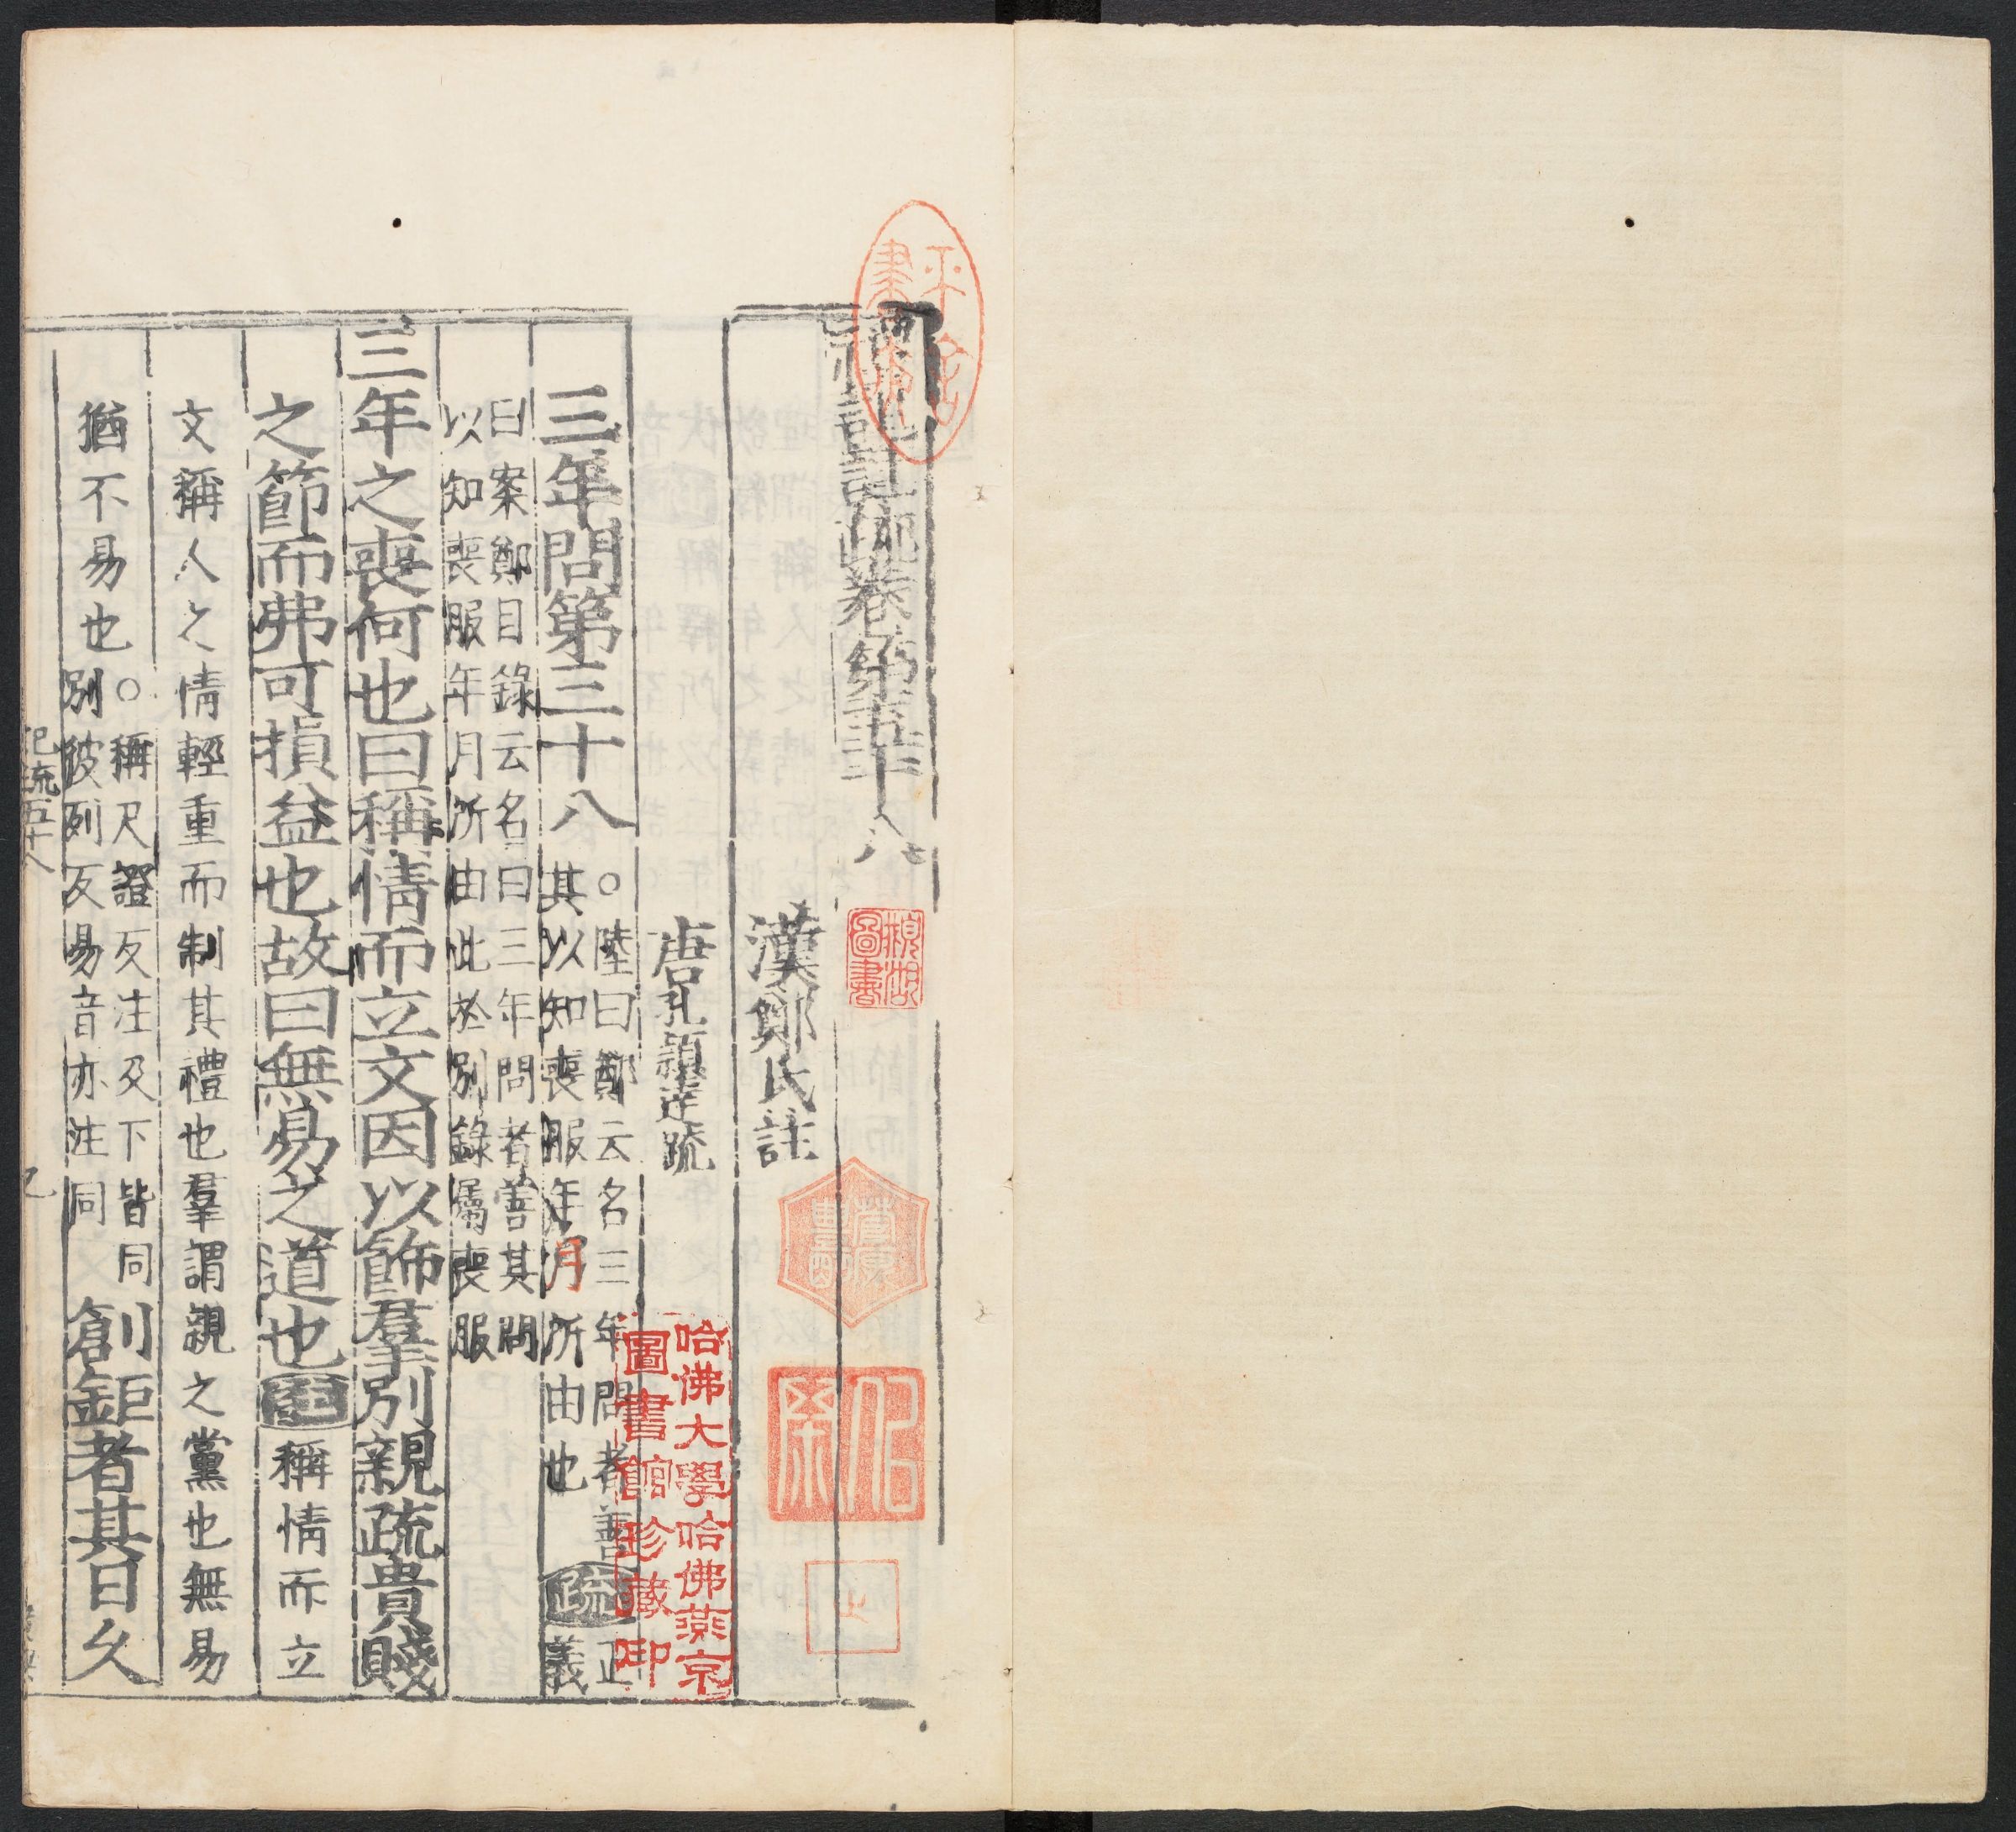 禮記註疏卷第五十八
漢鄭氏註
唐孔穎達疏
三年問第三十八
○陸曰鄭云名三年問者善
其以知喪服年月所由也
疏
正
義
曰案鄭目錄云名曰三年問者善其問
以知喪服年月所由此於別錄屬喪服
三年之喪何也曰稱情而立文因以飾羣別親疏貴賤
之節而弗可損益也故曰無易之道也
稱情而立
文稱人之情輕重而制其禮也羣謂親之黨也無易
猶不易也
○稱尺證反注及下皆同
別彼列反易音亦注同
創鉅者其日久
記疏五十八
哈佛大學哈佛燕京
圖書館珍藏印
圖書